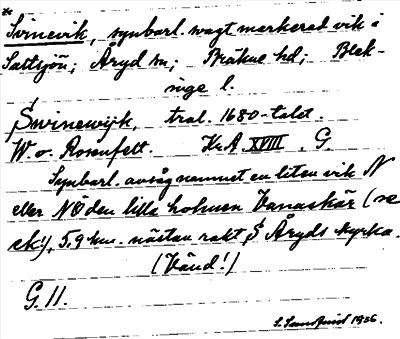 * Svinevik, synbarl. svagt markerad vik i
Saltsjön; Åryd sn; Bräkne hd; Blek-
inge l.
Swinewijk, trol. 1680-talet.
W. v. Rosenfelt. Kr.A. XVIII. G.
Synbarl. avsåg namnet en liten vik N
eller NÖ den lilla holmen Vanaskär (se
ek!), 5,9 km. nästan rakt S Åryds kyrka.
(Vänd!)
G. 11.
1936.